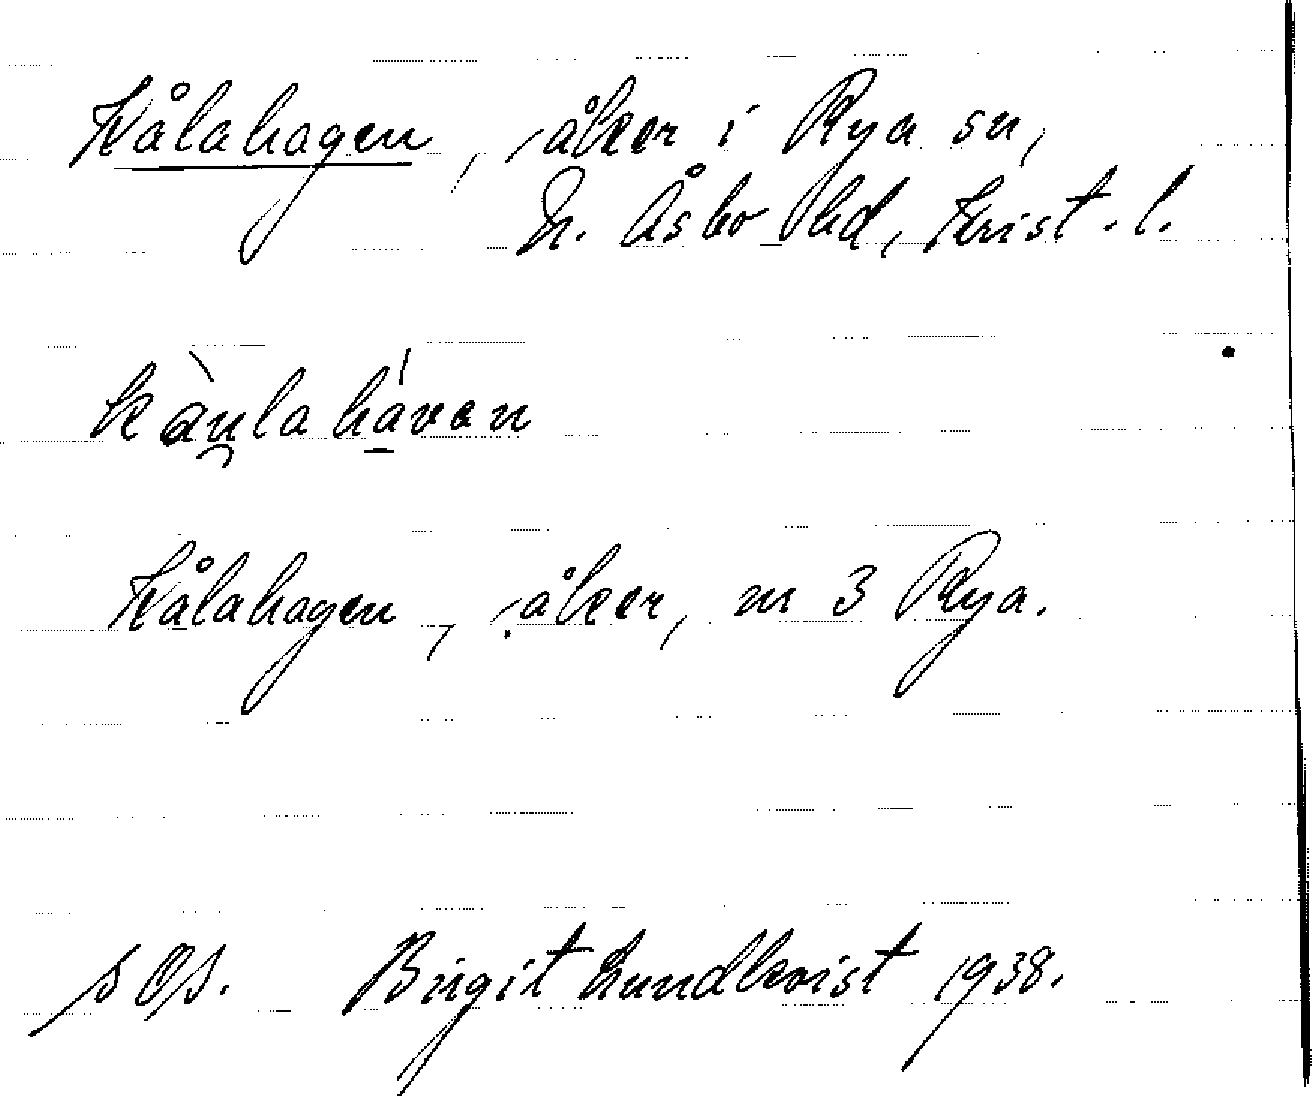 Kålahagen, åker i Rya sn,
N. Åsbo hd, Krist. l.
kàu̯lahávan
Kålahagen, åker, m 3 Rya.
Birgit Lundkvist 1938.